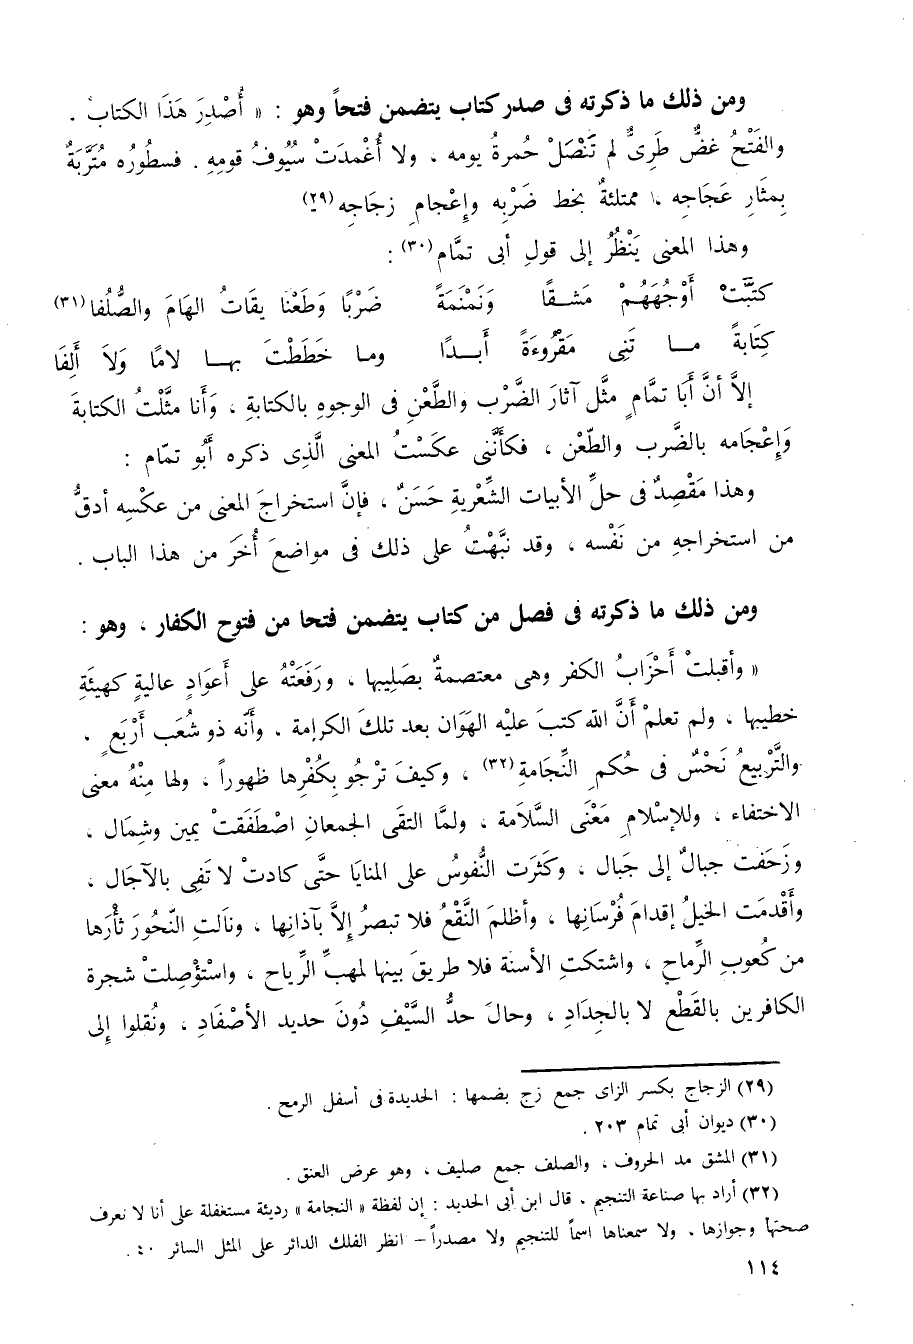 ومن ذلك ما ذكرته فى صدر كتاب يتضمن فتحاً وهو : « أُصْدِرَ هَذَا الكتاب .
والفَتْحُ غضٌّ طَرِىٌّ لم تَنْصَلْ حُمرةُ يومه ، ولا أُغْمدَتْ سُيُوفُ قومِهِ . فسطُوره مُتَرَّبَةٌ
بِمثَارِ عَجَاجِه ، ممتلئةٌ بخط ضَرْبِه وإِعْجامِ زجَاجِه (٢٩)
وهذا المعنى يَنْظُرُ إلى قولِ أبى تمَّام (٣٠) :
كتَبَّتْ أَوْجُهَهُمْ مَشـقًا وَنَمْنَمَةً ضَرْبًا وَطَعْنا يقَاتُ الهَامَ والصُّلُفا (٣١)
كِتَابةً مـا تَنِى مَقْرُوءَةً أَبـدًا ومـا خَطَطْتَ بهـا لامًا وَلاَ أَلِفَا
إلاَّ أنَّ أَبَا تمَّامٍ مثَّل آثارَ الضَّرْب والطَّعْنِ فى الوجوهِ بالكتابةِ ، وَأَنا مثَّلْتُ الكتابةَ
وَإِعْجَامه بالضَّرب والطّعْن ، فكأَنَّنى عكَسْتُ المعنى الَّذِى ذكره أَبُو تمّام :
وهذا مَقْصِدٌ فى حلِّ الأبيات الشِّعْريةِ حَسَنٌ ، فإنَّ استخراجَ المعنى من عكْسِه أدقُّ
من استخراجهِ من نَفْسه ، وقد نبَّهْتُ على ذلك فى مواضعَ أُخَرَ من هذا الباب .
ومن ذلك ما ذكرته فى فصل من كتاب يتضمن فتحا من فتوح الكفار ، وهو :
« وأقبلتْ أَحْزَابُ الكفر وهى معتصمةٌ بصَلِيبها ، ورَفَعَتْهُ على أَعوَادٍ عاليةٍ كهيئَةِ
خطيبها ، ولم تعلمْ أَنَّ الله كتبَ عليْه الهَوَان بعد تلكَ الكرامة . وأَنّه ذو شُعَب أَرْبَعٍ .
والتَّرْبيعُ نَحْسٌ فى حُكمِ النِّجامةِ (٣٢) ، وكيفَ ترْجُو بِكُفْرِها ظهوراً ، ولها مِنْهُ معنى
الاختفاء ، وللإسْلامِ مَعْنَى السَّلامة ، ولمَّا التقَى الجمعانِ اصْطَفَقتْ يمين وشِمَال ،
وزَحَفت جبالٌ إلى جَبال ، وكَثرَت النُّفوسُ على المنايَا حتَّى كادتْ لا تَفِى بالآجَال ،
وأَقْدمَت الخيلُ إقدامَ فُرْسَانِها ، وأظلمَ النَّقْعُ فلا تبصرُ إلاَّ بآذانِها ، ونَالتِ النّحُورَ ثأْرَها
من كُعوبِ الرِّماحِ ، واشتكتِ الأسنة فلا طريقَ بينها لمهبِّ الرِّياح ، واستُؤْصِلتْ شجرة
الكافرين بالقَطْع لا بالجِدَادِ ، وحالَ حدُّ السَّيْفِ دُونَ حديد الأصْفَادِ ، ونُقلوا إلى
(٢٩) الزجاج بكسر الزاى جمع زج بضمها : الحديدة فى أسفل الرمح .
(٣٠) ديوان أبى تمام ٢٠٣ .
(٣١) المشق مد الحروف ، والصلف جمع صليف ، وهو عرض العنق .
(٣٢) أراد بها صناعة التنجيم . قال ابن أبى الحديد : إن لفظة « النجامة » رديئة مستغفلة على أنا لا نعرف
صحتها وجوازها ، ولا سمعناها اسماً للتنجيم ولا مصدراً – انظر الفلك الدائر على المثل السائر ٤٠ .
١١٤